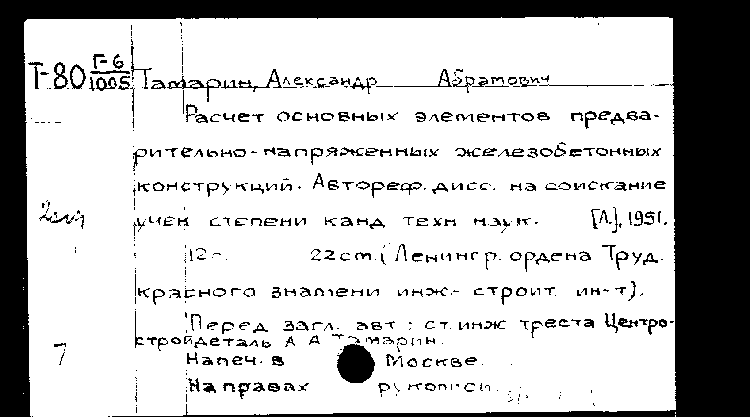 Т-80 Г-6/1005 Тамарин, Александр Абрамович
Расчет основных элементов предва-
рительно-напряженных железобетонных
конструкций. Автореф. дисс. на соискание
учен степени канд техн наук. [Л.], 1951.
12 с. 22 cm. (Ленингр. ордена Труд.
красного знамени инж.- строит. ин-т).
Перед загл. авт: ст. инж треста Центро-
стройдеталь А А Тамарин.
7 Напеч. в Москве.
На правах рукописи.